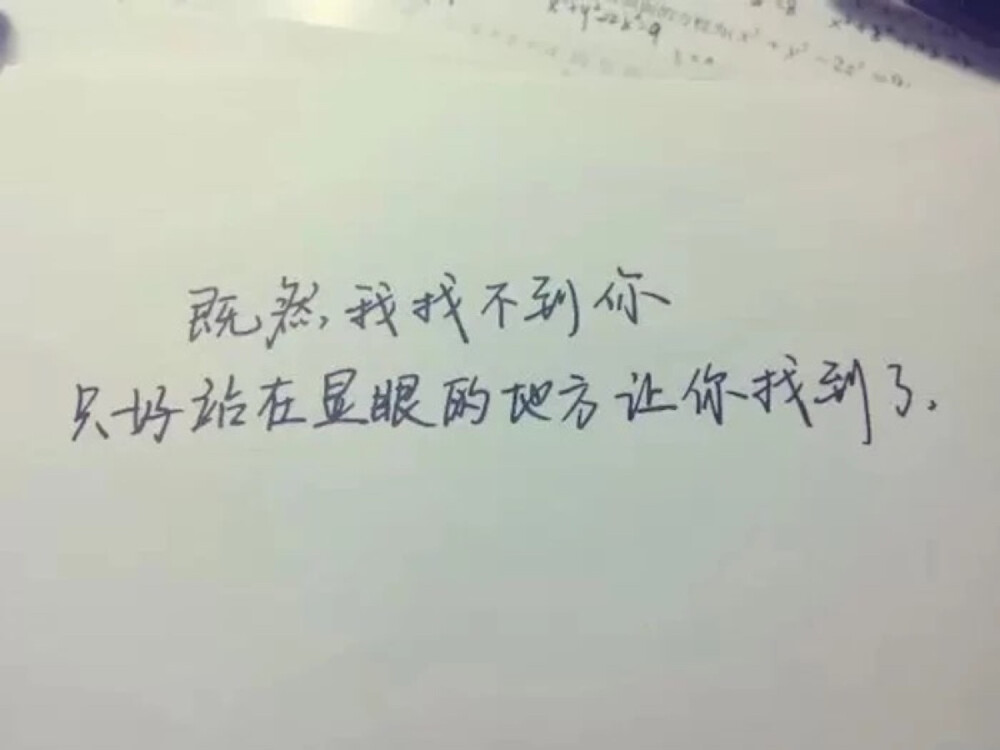 既然,我找不到你
只好站在显眼的地方让你找到了.